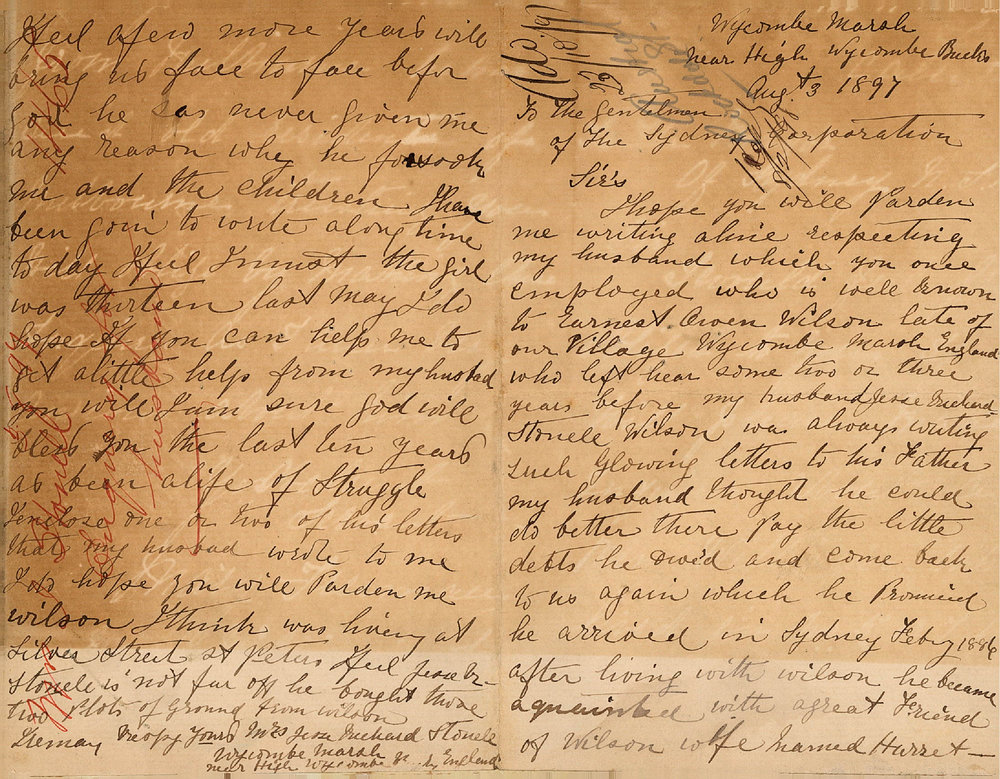 Wycombe Marsh
Near High Wycombe Bucks
Augt 3 1897
To the Gentelmen
of The Sydney Corporation
Sir's
I hope you will Parden
me writing aline respecting
my husband which you once
employed who is well known
to Earnest Owen Wilson late of
our Village Wycombe Marsh England
who left hear some two or three
years before my husband Jesse Richard
Stonele Wilson was always writing
such Glowing letters to his Father
my husband thought he could
do better there Pay the little
debts he Owed and come back
to us again which he Promised
he arrived in Sydney Feby 1886
after living with wilson he became
aquainted with agreat Friend
of Wilson wife Named Hurret
I feel afew more years will
bring us face to face befor
God he has never given me
any reason why he forsook
me and the children I have
been goin to write along time
to day I feel I must the girl
was thirteen last may I do
hope If you can help me to
get alittle help from my husbad
you will I am sure god will
bless you the last ten years
as been alife of Struggle
I enclose one or two of his letters
that my husbad wrote to me
I do hope you will Parden me
wilson I think was living at
Silver Street st Peters I feel Jesse R
Stonele is not far off he bought those
two Plots of Ground from wilson
I remain Respy Yours Mrs Jesse Richard Stonele
Wycombe Marsh
near High Wycombe England